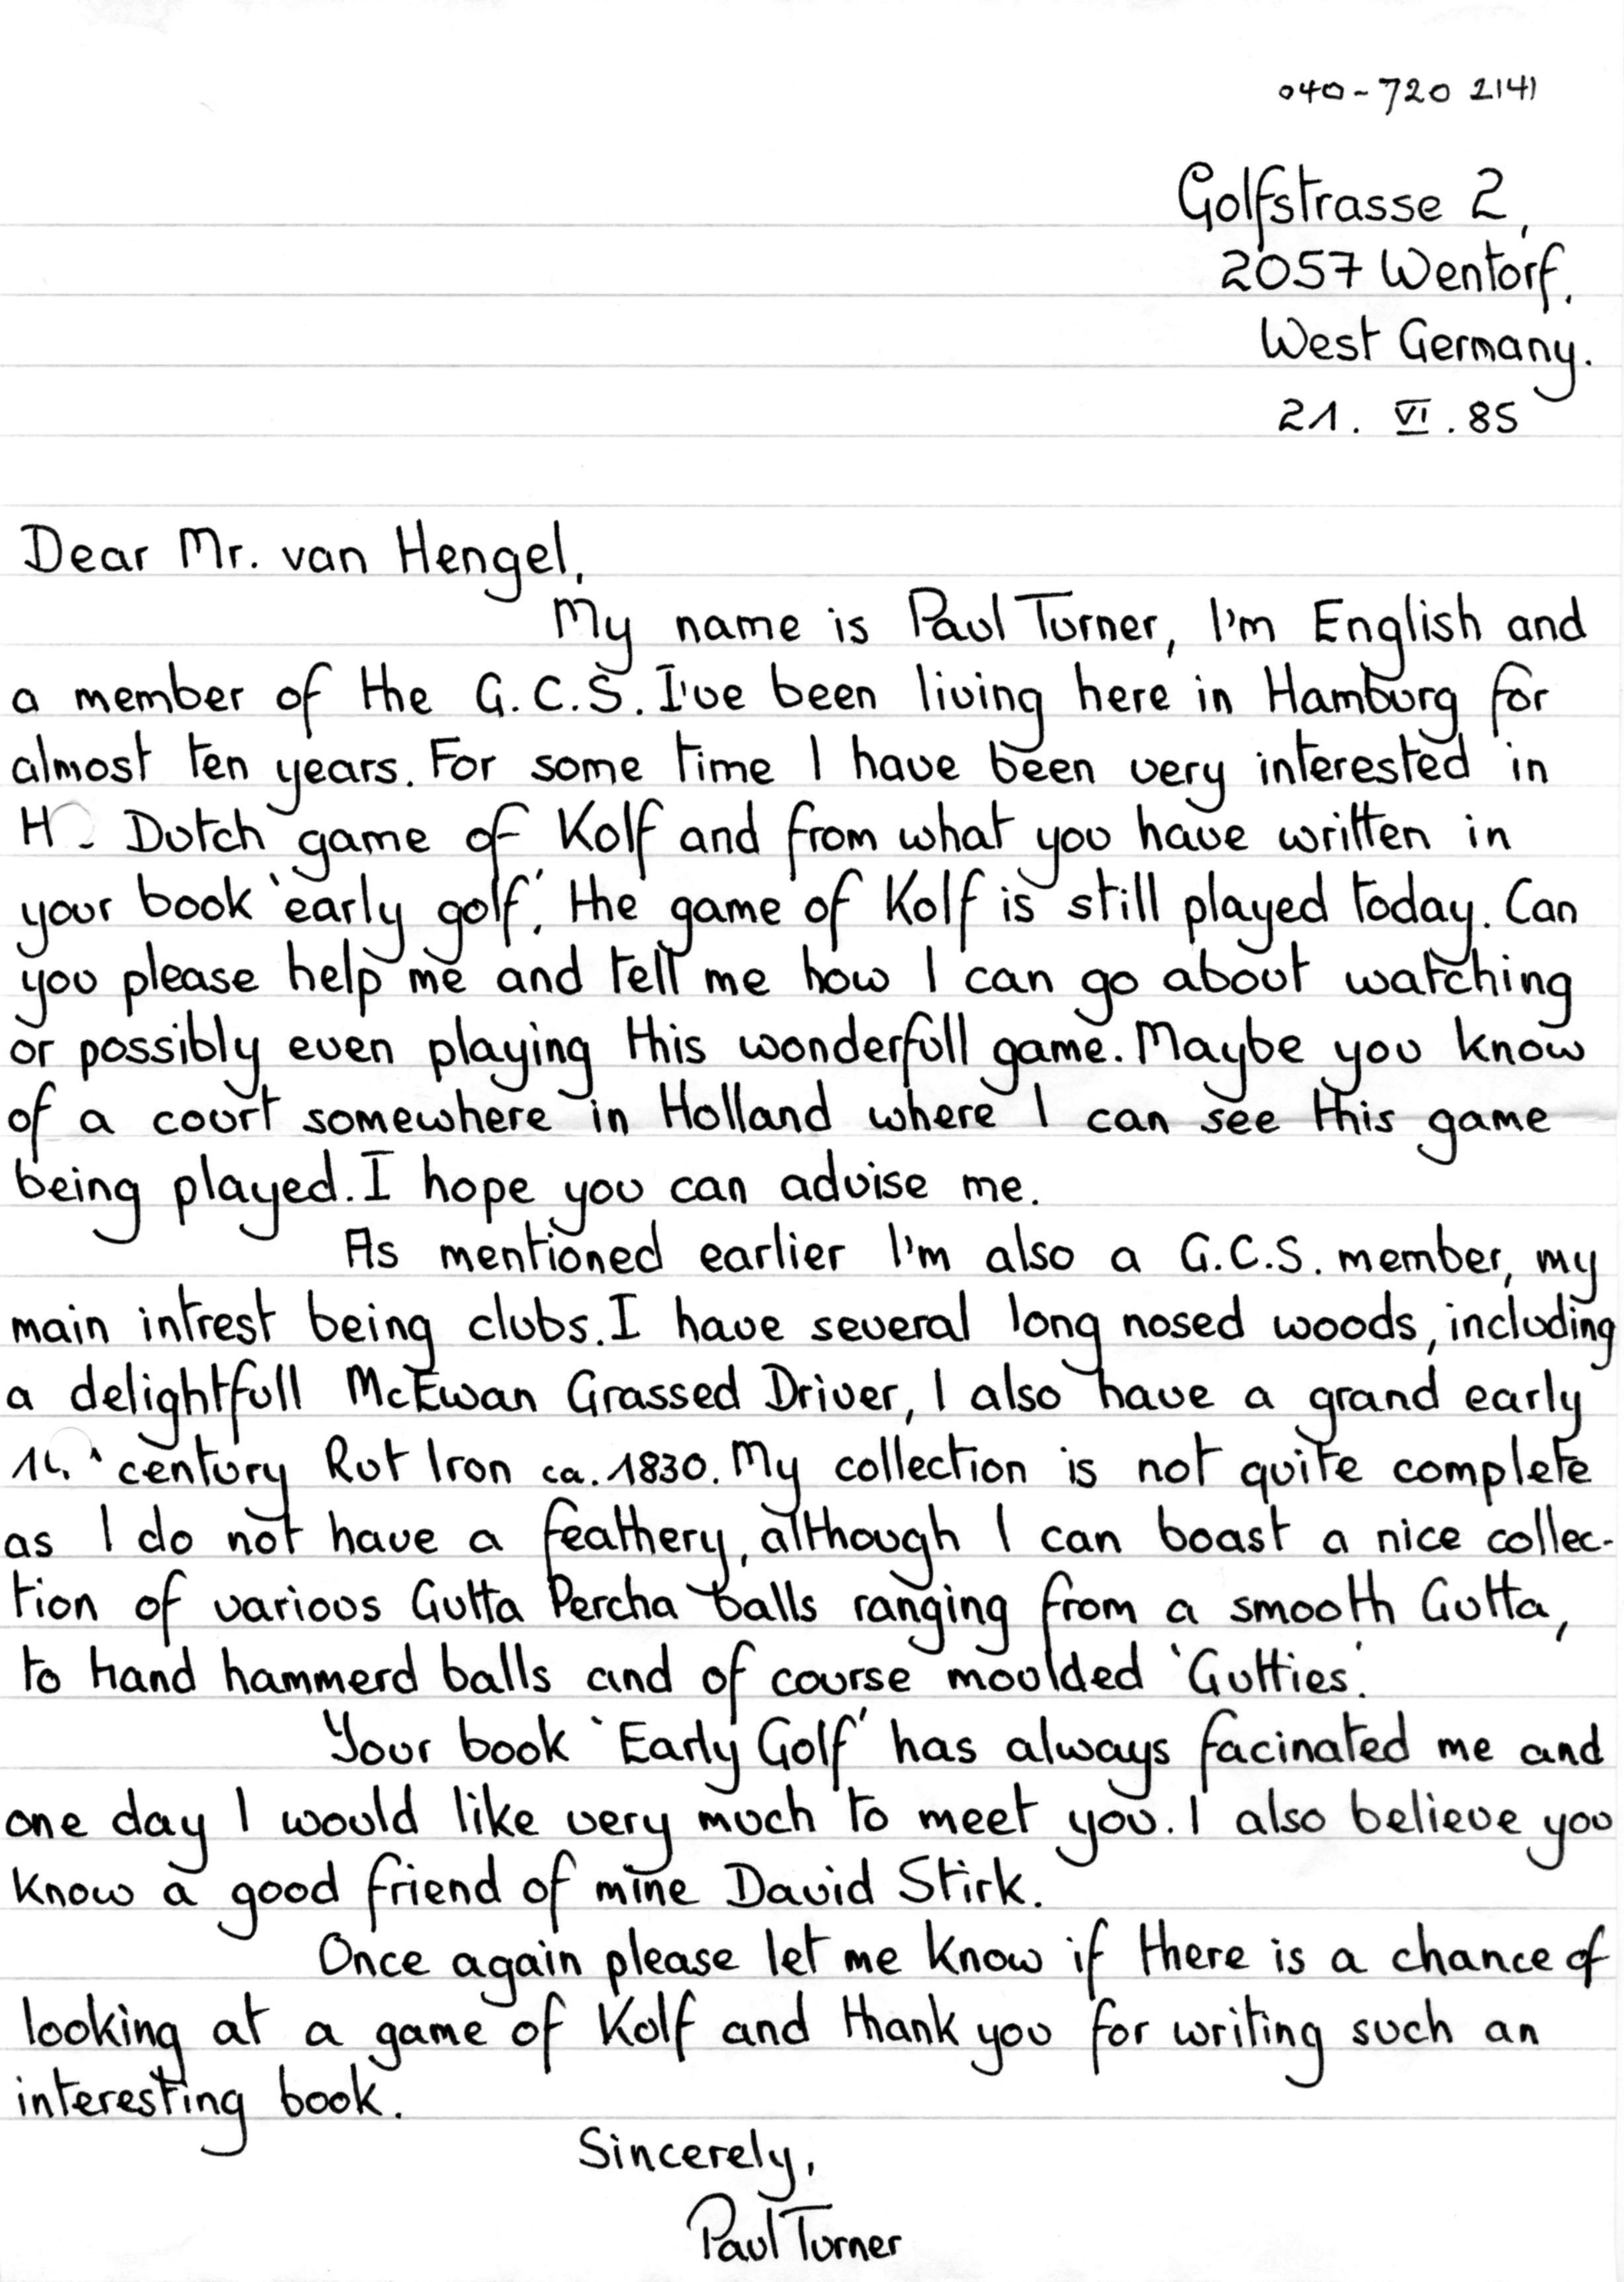 040-720 2141
Golfstrasse 2,
2057 Wentorf.
West Germany.
21. VI. 85
Dear Mr. van Hengel,
My name is Paul Turner, I'm English and
a member of the G.C.S. I've been living here in Hamburg for
almost ten years. For some time I have been very interested in
Dutch game of Kolf and from what you have written in
your book 'early golf', the game of Kolf is still played today. Can
you please help me and tell me how I can go about watching
or possibly even playing this wonderfull game. Maybe you know
of a court somewhere in Holland where I can see this game
being played. I hope you can advise me.
As mentioned earlier I'm also a G.C.S. member, my
main intrest being clubs. I have several long nosed woods, including
a delightfull McEwan Grassed Driver, I also have a grand early
century Rut Iron ca. 1830. My collection is not quite complete
as I do not have a feathery, although I can boast a nice collec-
tion of various Gutta Percha balls ranging from a smooth Gutta,
to hand hammerd balls and of course moulded 'Gutties'.
Your book 'Early Golf' has always facinated me and
one day I would like very much to meet you. I also believe you
know a good friend of mine David Stirk.
Once again please let me know if there is a chance of
looking at a game of Kolf and thank you for writing such an
interesting book.
Sincerely,
Paul Turner